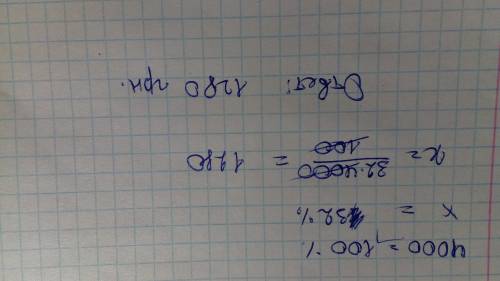 4000 = 100 %
x = 32 %
x = 32·4000 / 100 = 1280
Ответ: 1280 грн.